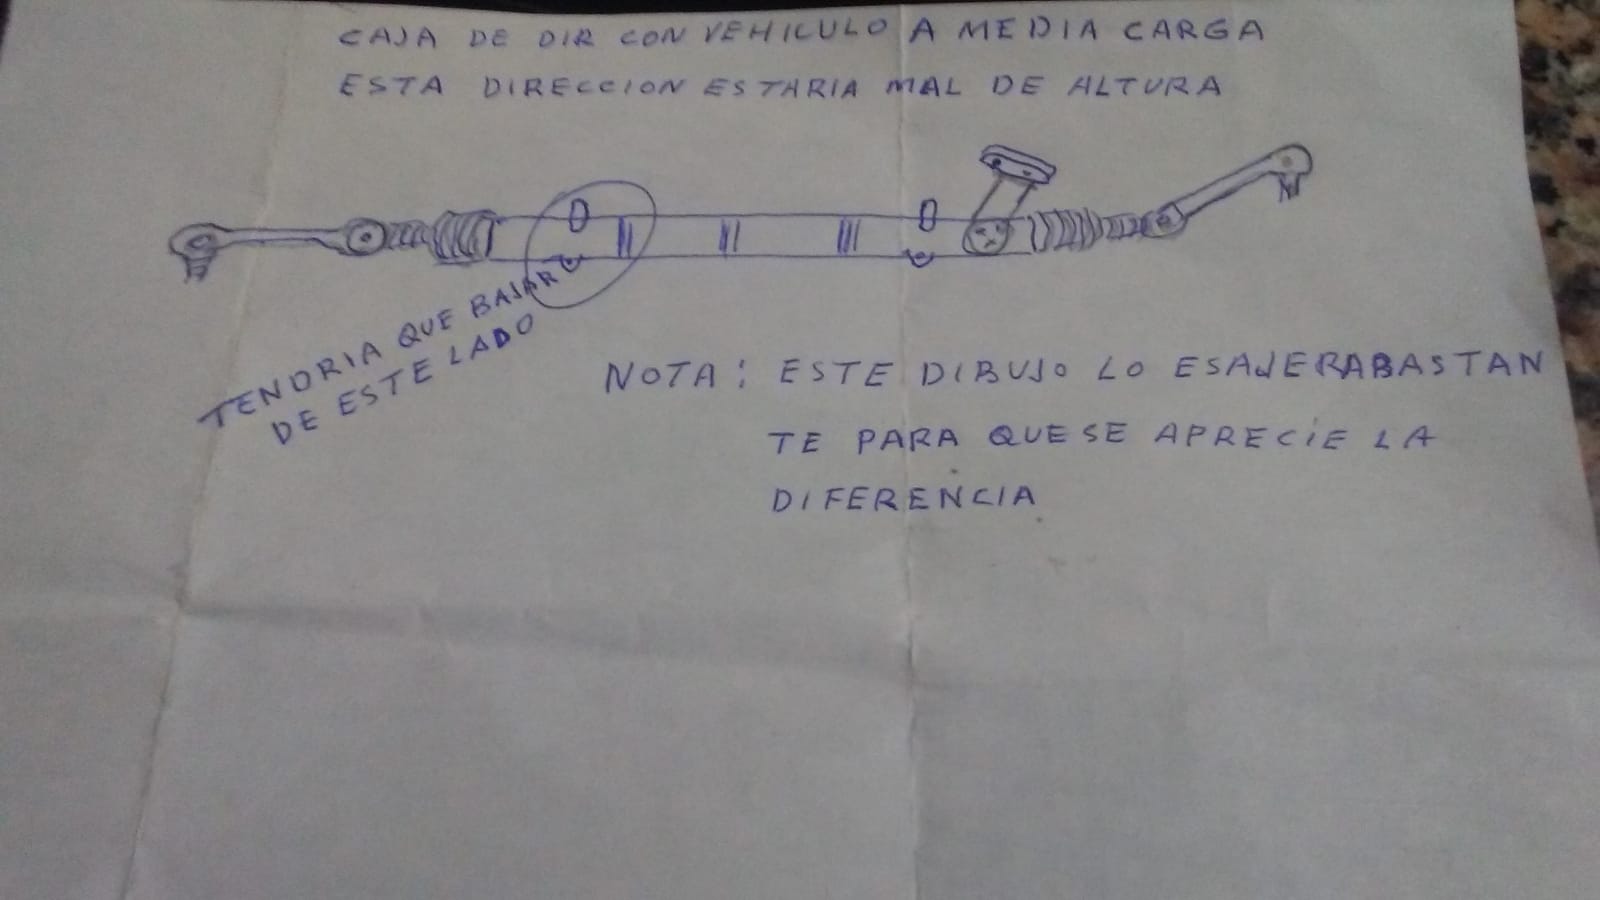 CAJA DE DIR CON VEHICULO A MEDIA CARGA
ESTA DIRECCION ESTARIA MAL DE ALTURA
TENDRIA QUE BAJAR
DE ESTE LADO
NOTA: ESTE DIBUJO LO ESAJERABASTAN
TE PARA QUE SE APRECIE LA
DIFERENCIA